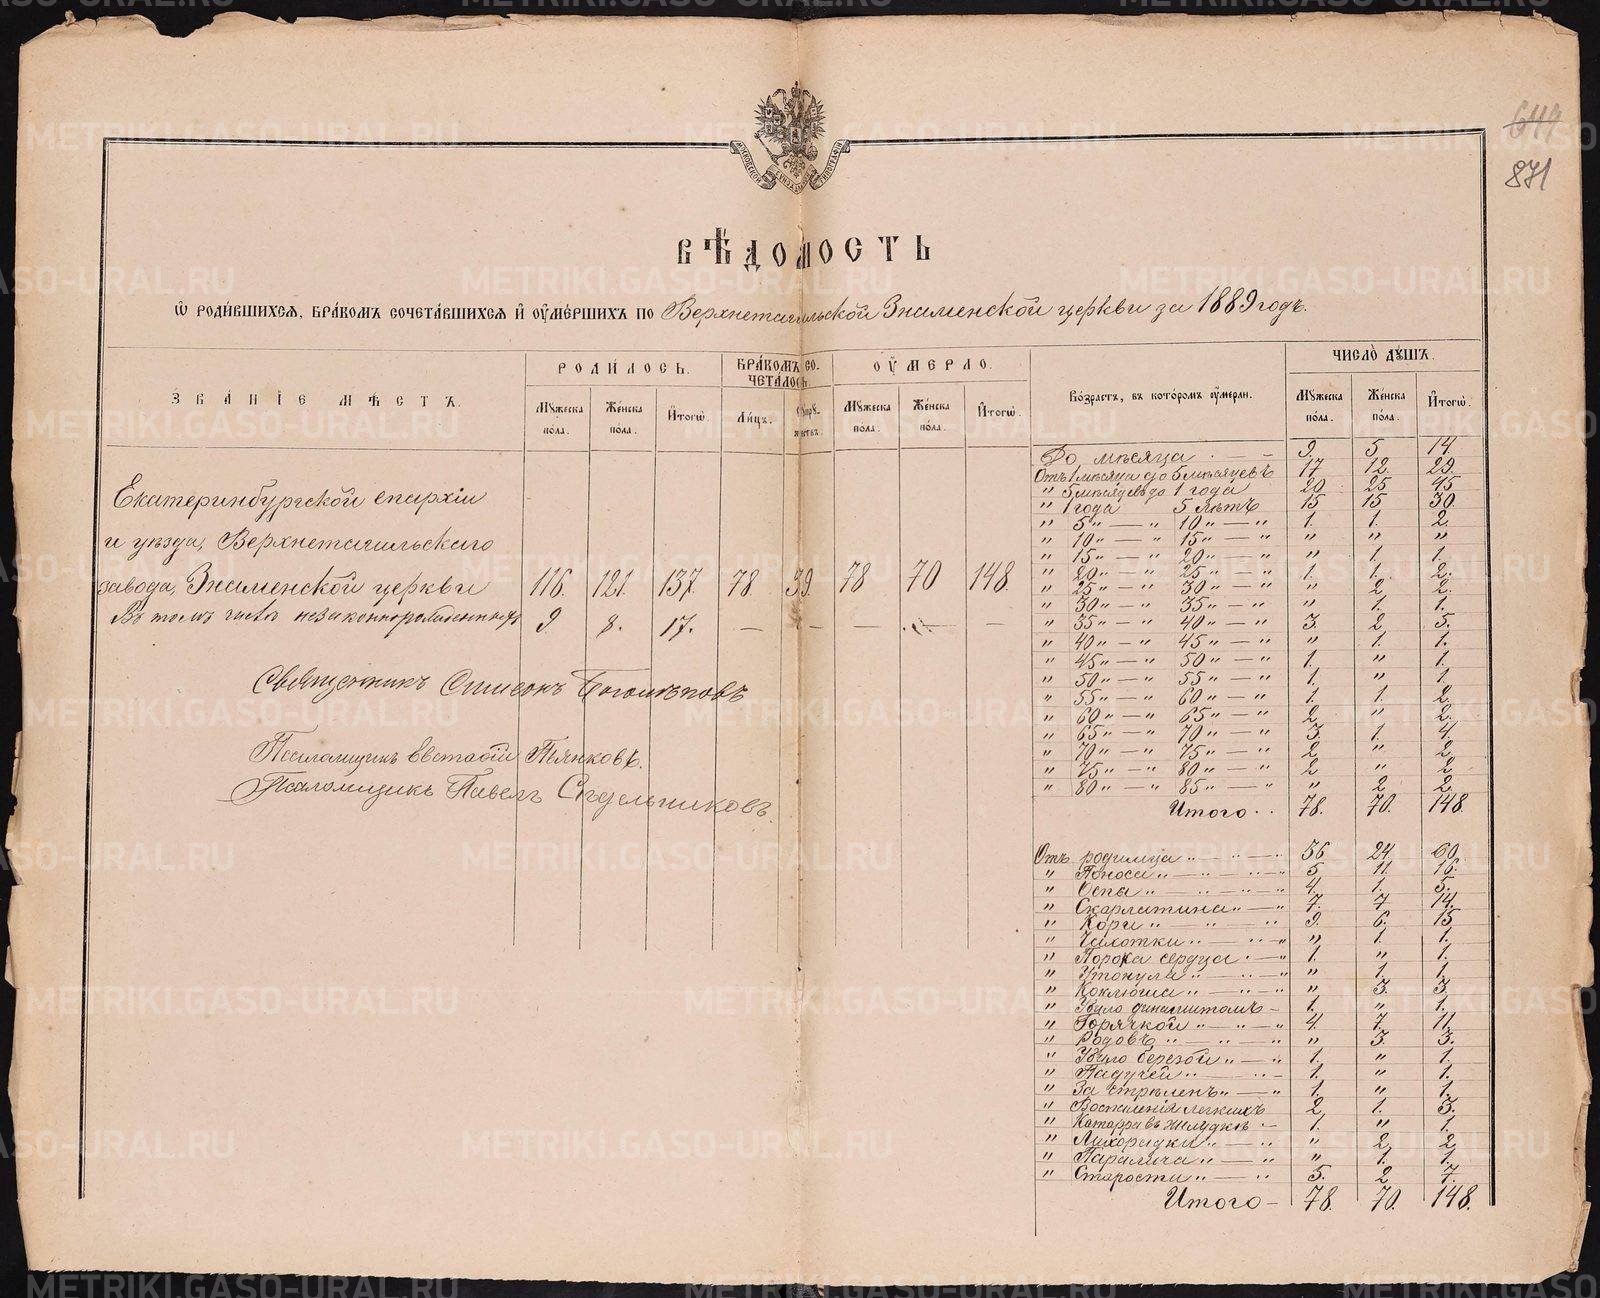 644
871
ВѢДОМОСТЬ
Ѡ РОДИ́ВШИХСЯ, БРА́КОМЪ СОЧЕТА́ВШИХСЯ И҆ ОУ҆МЕ́РШИХЪ ПО Верхнетагильской Знаменской церкви за 1889 годъ.
ЗВАНІЕ МѢСТЪ. РОДИЛОСЬ. БРА́КОМЪ СОЧЕТАЛОСЬ. ОУ҆МЕРЛО. Во́зрастъ, въ кото́ромъ оу҆мерли. ЧИСЛО̀ ДꙊШЪ.
Мꙋжеска по́ла. Же́нска по́ла. И҆того̀. Ли́цъ. Сꙋпрꙋжествъ. Мꙋжеска по́ла. Же́нска по́ла. И҆того̀. Мꙋжеска по́ла. Же́нска по́ла. И҆того̀.
Екатеринбургской епархіи
и уѣзда, Верхнетагильскаго
завода, Знаменской церкви 116. 121. 137. 78. 39. 78 70 148.
Въ томъ числѣ незаконнорожденныхъ 9. 8. 17. — — — — —
Священникъ Симеонъ Боголѣповъ
Псаломщикъ Евстафій Пьянковъ.
Псаломщикъ Павелъ Сѣдельниковъ.
До мѣсяца 9. 5 14.
Отъ 1 мѣсяца до 5 мѣсяцевъ 17 12. 29.
" 5 мѣсяцевъ до 1 года 20 25 45
" 1 года 5 лѣтъ 15 15 30.
" 5 " — " 10 " — " 1. 1. 2.
" 10 " — " 15 " — " " " "
" 15 " — " 20 " — " " 1. 1.
" 20 " — " 25 " — " 1. 1. 2.
" 25 " — " 30 " — " " 2 2.
" 30 " — " 35 " — " " 1. 1.
" 35 " — " 40 " — " 3. 2 5.
" 40 " — " 45 " — " " 1. 1.
" 45 " — " 50 " — " 1. " 1.
" 50 " — " 55 " — " 1. " 1.
" 55 " — " 60 " — " 1. 1. 2.
" 60 " — " 65 " — " 2. " 2.
" 65 " — " 70 " — " 3. 1. 4.
" 70 " — " 75 " — " 2 " 2
" 75 " — " 80 " — " 2 " 2
" 80 " — " 85 " — " " 2 2.
Итого 78. 70. 148.
Отъ родимца 36 24 60.
" Поноса 5 11. 16.
" Оспы 4. 1. 5.
" Скарлатина 7. 7 14.
" Кори 9. 6. 15
" Чахотки " 1. 1.
" Порока сердца 1. " 1.
" Утонула " 1. 1.
" Коклюша " 3. 3.
" Убило динамитомъ 1. " 1.
" Горячкой 4. 7. 11.
" Родовъ " 3. 3.
" Убило березой 1. " 1.
" Падучей 1. " 1.
" Застрѣленъ 1. " 1.
" Воспаленія легкихъ 2 1. 3.
" Катарра въ желудкѣ 1. " 1.
" Лихорадки " 2 2
" Паралича " 1. 1.
" Старости 5. 2 7.
Итого 78. 70. 148.
METRIKI.GASO-URAL.RU